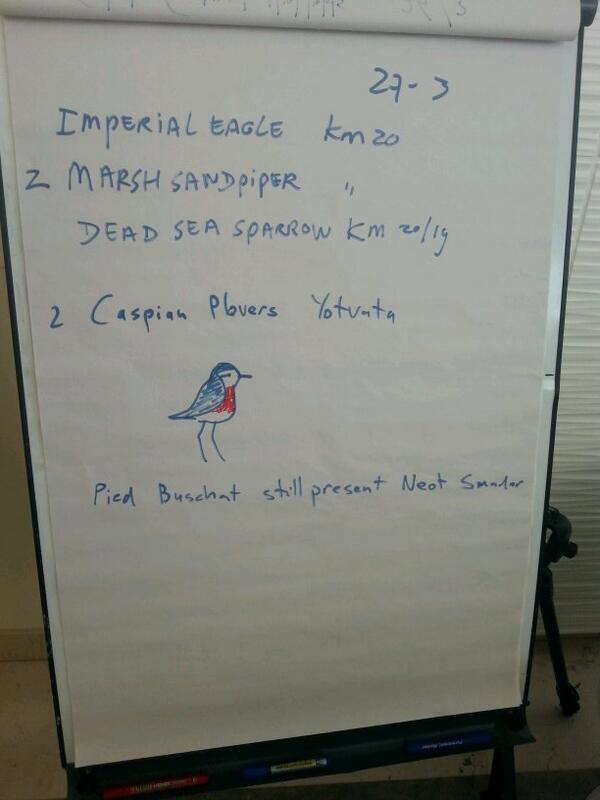 27-3
IMPERIAL EAGLE km 20
2 MARSH SANDPIPER "
DEAD SEA SPARROW KM 20/19
2 Caspian Plovers Yotvata
Pied Buschat still present Neot Smadar